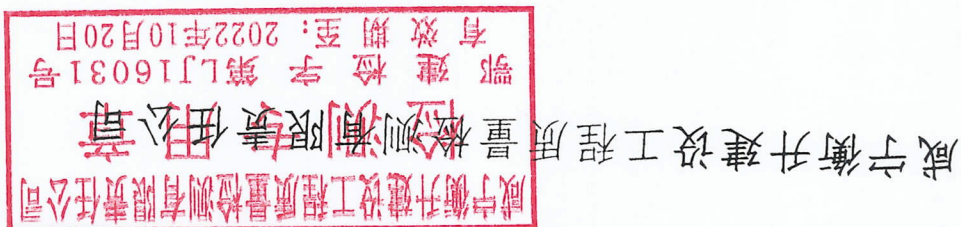 咸宁衡升建设工程质量检测有限责任公司
咸宁衡升建设工程质量检测有限责任公司
检测专用章
鄂建检字第LJ16031号
有效期至：2022年10月20日